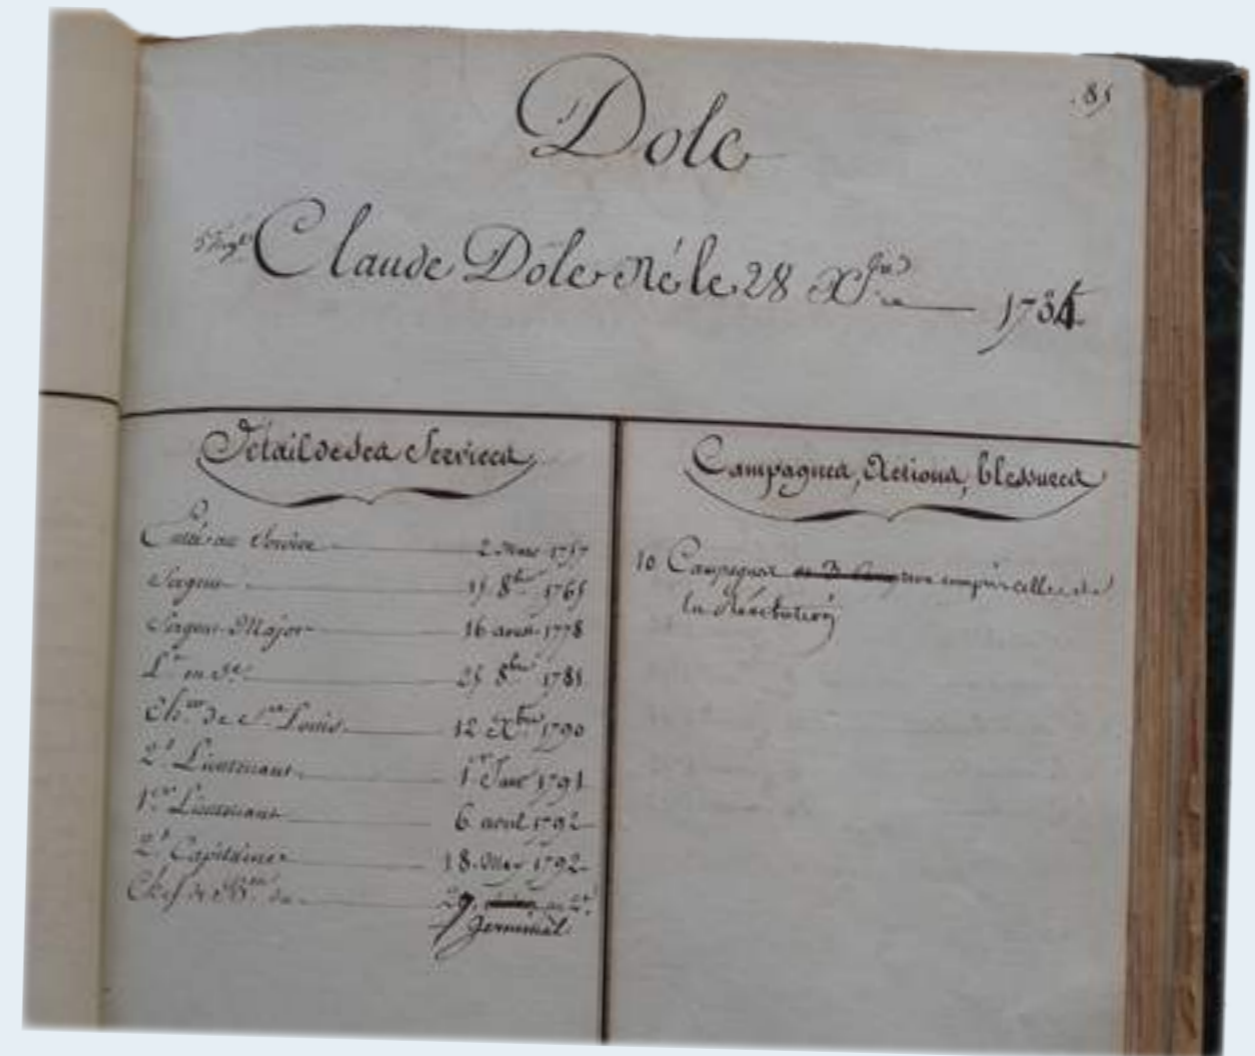 85
Dole
Claude Dole Né le 28 Xbre 1734
Détail de ses Services
Entré au Service 2 Mars 1757
Sergent 15 8bre 1765
Sergent Major 16 avril 1778
Lt en 25 8bre 1785
Cher de St Louis 12 Xbre 1790
2d Lieutenant 1er 1791
1er Lieutenant 6 aout 1792
2d Capitaine 18 1792
Chef de Bon 29 an 2d
Germinal
Campagnes, Actions, blessures
10 Campagnes compris celles de
la Révolution